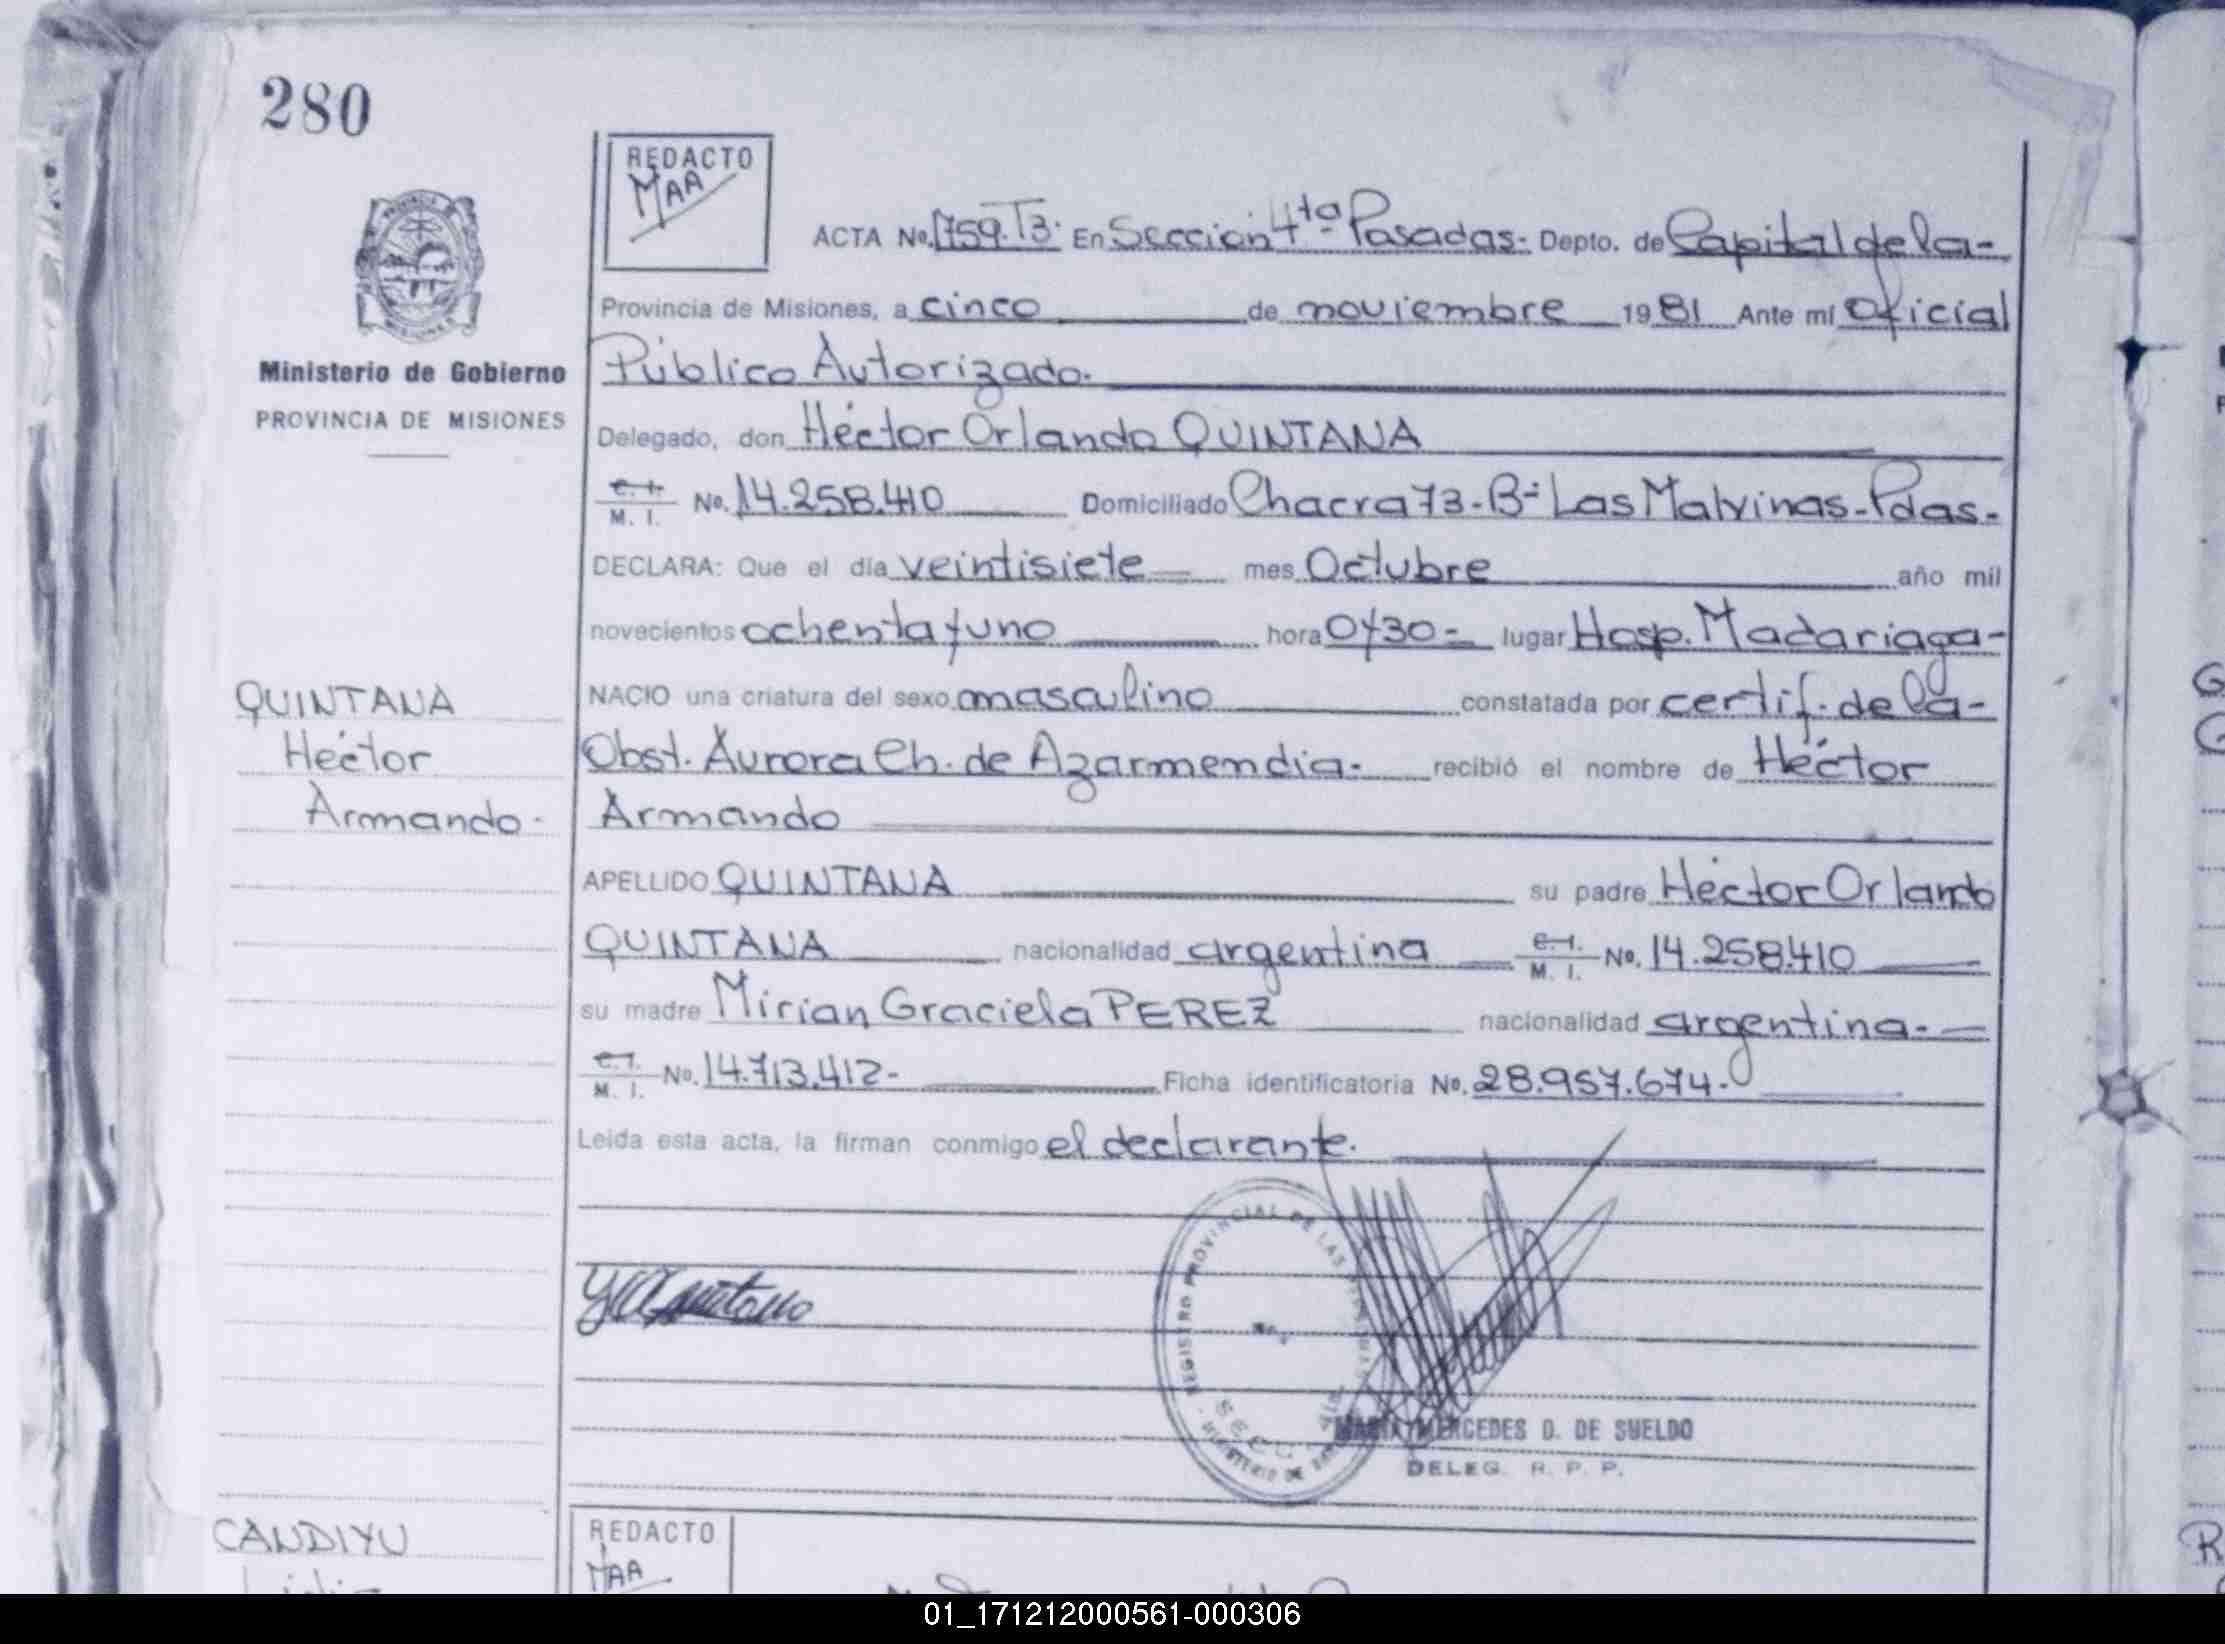 280
REDACTO
MAA
ACTA No. 1759.T3. En Sección 4ta Posadas. Depto. de Capital de la-
Provincia de Misiones, a cinco de noviembre 1981 Ante mí Oficial
Público Autorizado.
Ministerio de Gobierno
PROVINCIA DE MISIONES
Delegado, don Héctor Orlando QUINTANA
C. I. M. I. No. 14.258.410 Domiciliado Chacra 73-Bº Las Malvinas-Pdas-
DECLARA: Que el día veintisiete mes Octubre año mil
novecientos ochenta y uno hora 0730 lugar Hosp. Madariaga-
NACIO una criatura del sexo masculino constatada por certif. de la-
Obst. Aurora Ch. de Azarmendia. recibió el nombre de Héctor
Armando
QUINTANA
Héctor
Armando.
APELLIDO QUINTANA su padre Héctor Orlando
QUINTANA nacionalidad argentina C. I. M. I. No. 14.258.410
su madre Mirian Graciela PEREZ nacionalidad argentina.
C. I. M. I. No. 14.713.412- Ficha identificatoria No. 28.957.674.
Leida esta acta, la firman conmigo el declarante.
REGISTRO PROVINCIAL DE LAS
MARIA MERCEDES D. DE SUELDO
DELEG. R. P. P.
CANDIYU
REDACTO
MAA
01_171212000561-000306